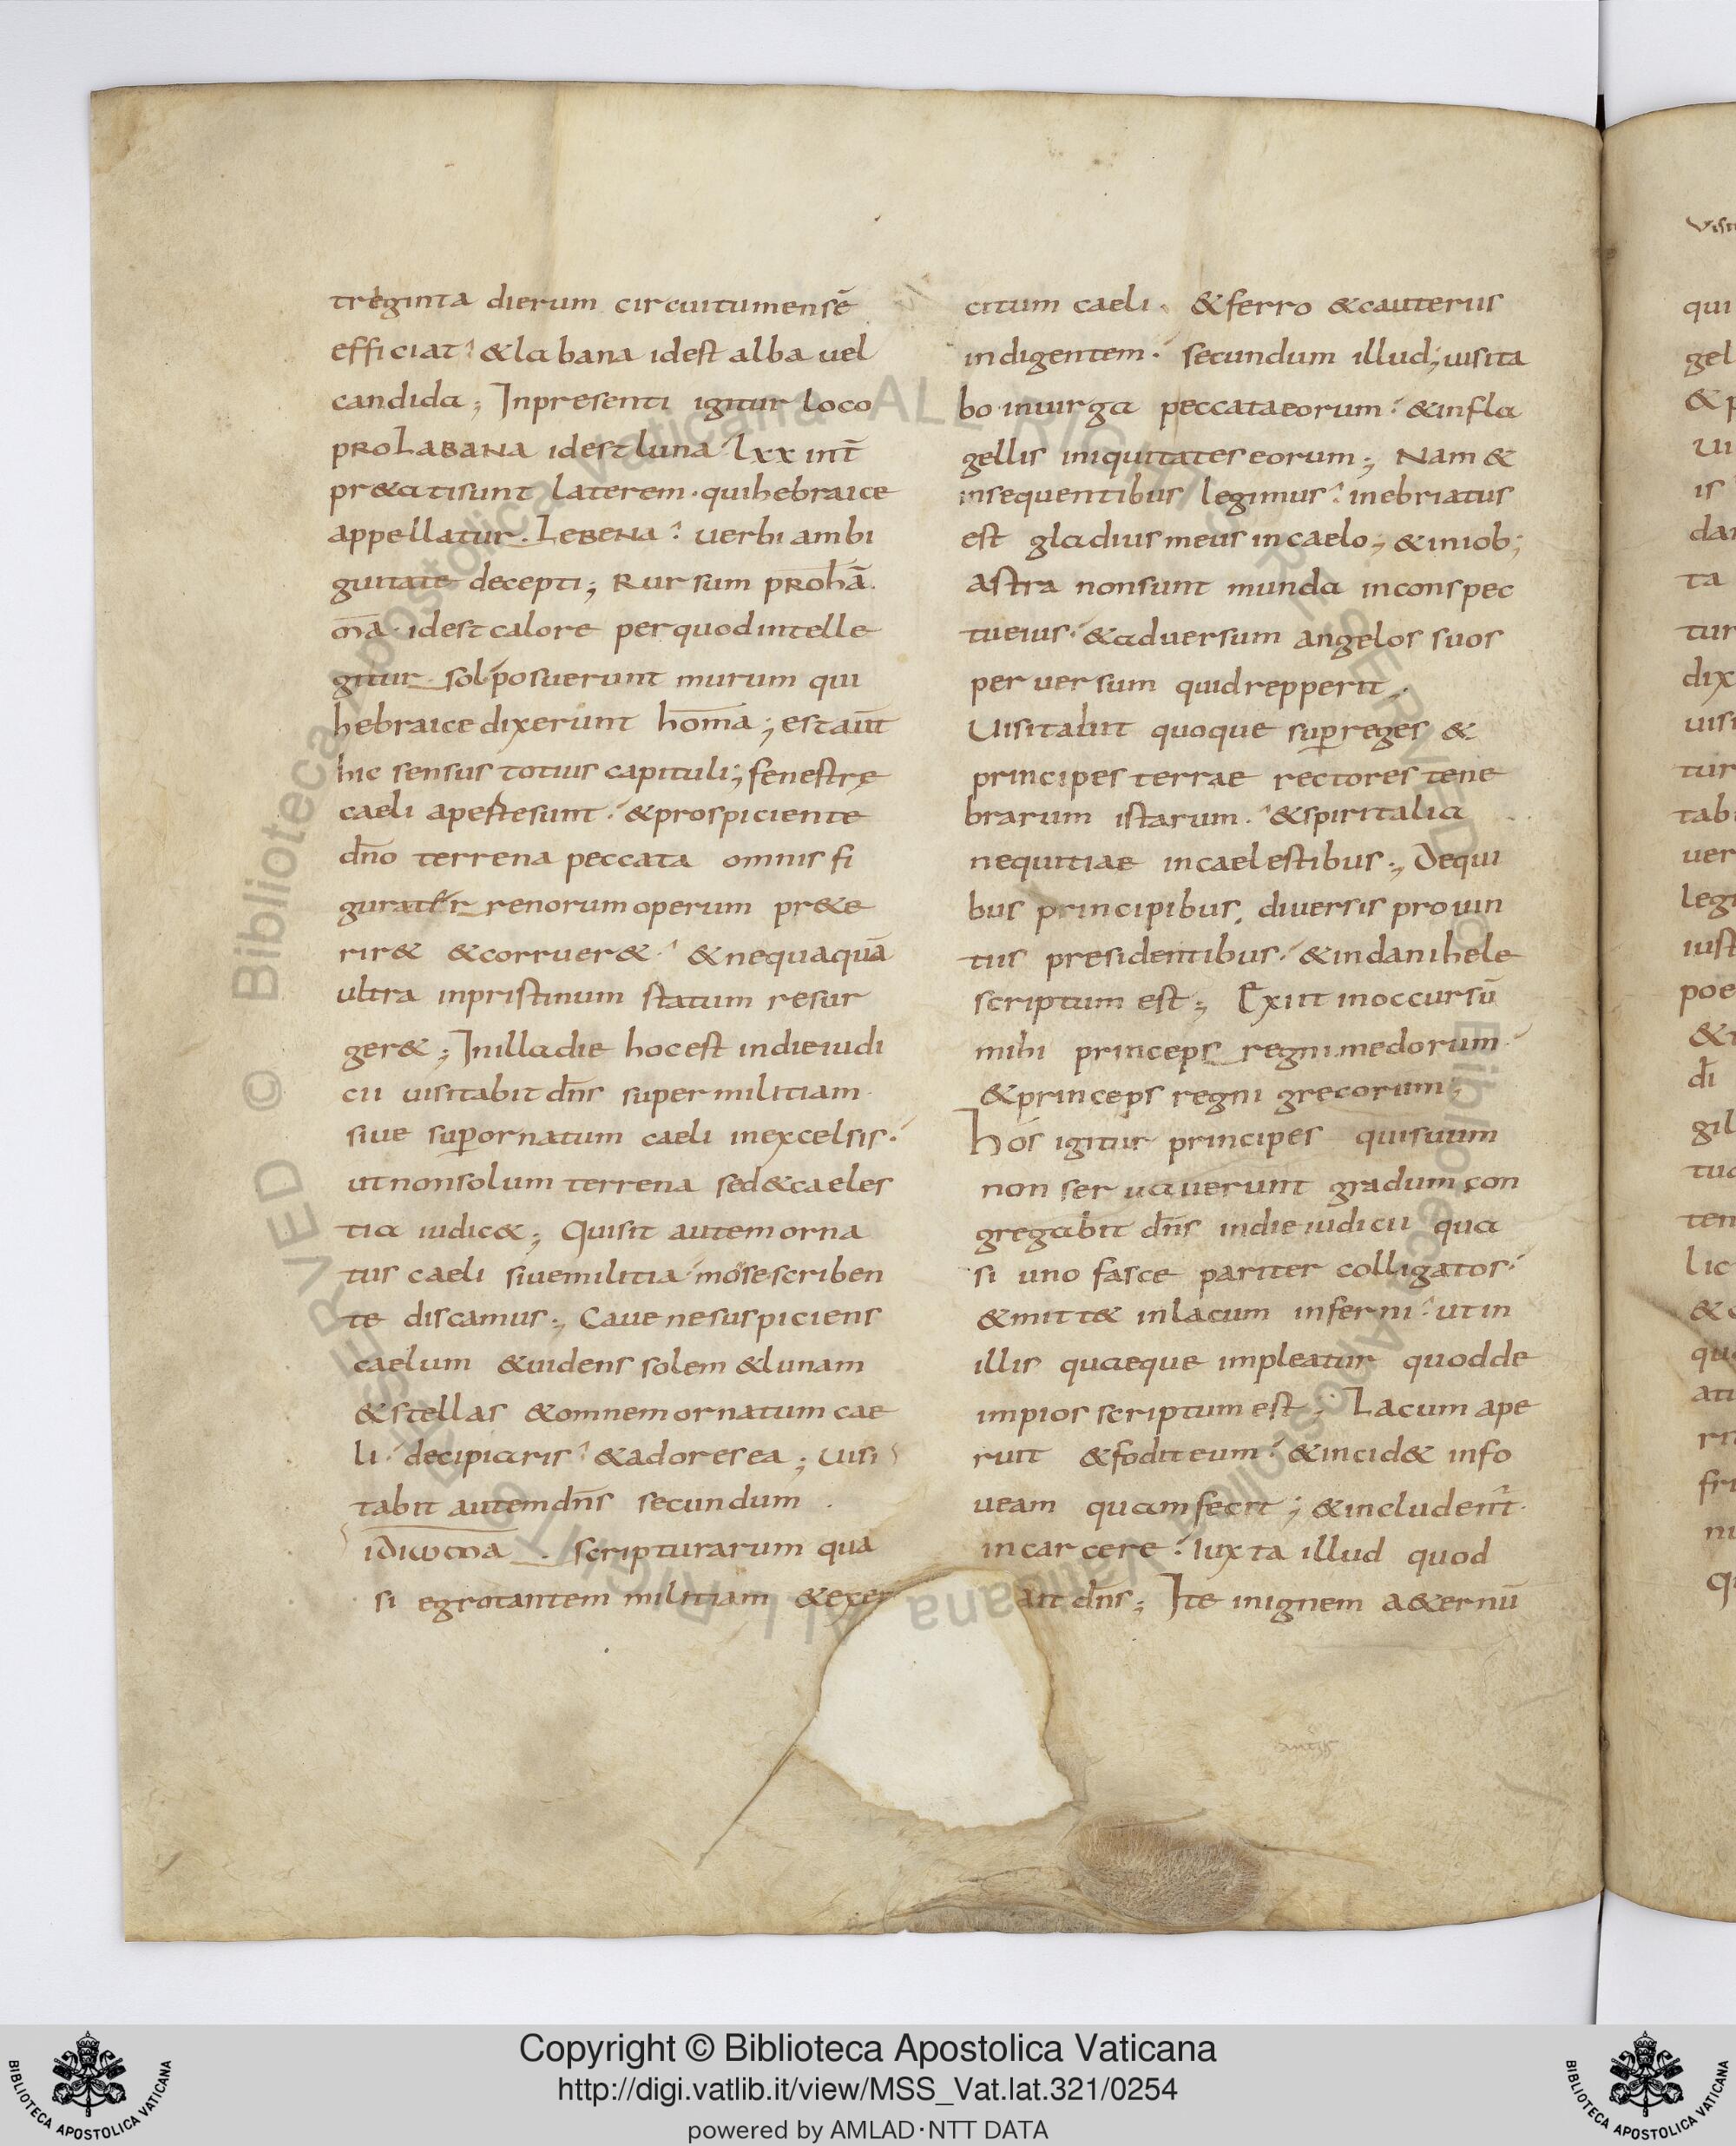 treginta dierum circuitumensē
efficiat &labana idest alba uel
candida; Inpresenti igitur loco
PROLABANA idest luna lxx int̄
pr&atisunt laterem. quihebraice
appellatur. LEBENA uerbi ambi
guitate decepti; Rursum PROhā
ma. idest calore perquodintelle
gitur sol posuerunt murum qui
hebraice dixerunt homa; est aut̄
hic sensus totius capituli; fenestrę
caeli apertesunt. &prospiciente
dn̄o terrena peccata omnis fi
gura terrenorum operum pr&e
rir& &corruer& &nequaquā
ultra inpristinum statum resur
ger&; Inilladie hocest indieiudi
cii uisitabit dn̄s supermilitiam
siue sup̱ornatum caeli inexcelsis.
utnonsolum terrena sed&caeles
tia iudic&; Quisit autem orna
tus caeli siuemilitia mosescriben
te discamus; Caue nesuspiciens
caelum &uidens solem &lunam
&stellas &omnem ornatum cae
li decipiaris &adores ea; Uisi
tabit autemdn̄s secundum
idiωma. scripturarum qua
si egrotantem militiam &exer
citum caeli. &ferro &cauteriis
indigentem. secundum illud; uisita
bo inuirga peccataeorum &infla
gellis iniquitates eorum; Nam &
insequentibus legimus inebriatus
est gladius meus in caelo; &iniob;
astra nonsunt munda inconspec
tueius &aduersum angelos suos
peruersum quidrepperit;
Uisitabit quoque sup̱reges &
principes terrae rectores tene
brarum istarum. &spiritalia
nequitiae incaelestibus; Dequi
bus principibus, diuersis prouin
tiis presidentibus &indanihele
scriptum est; Exiit inoccursū
mihi princeps regni medorum
&princeps regni grecorum;
hos igitur principes quisuum
non seruauerunt gradum con
gregabit dn̄s indie iudicii qua
si uno fasce pariter colligatos
&mitt& inlacum inferni utin
illis quaeque impleatur quodde
impios scriptum est; Lacum ape
ruit &fodit eum &incid& info
ueam quamfecit; &includent̄
incarcere Iuxta illud quod
ait dn̄s; Ite inignem a&ernū
Copyright © Biblioteca Apostolica Vaticana
http://digi.vatlib.it/view/MSS_Vat.lat.321/0254
powered by AMLAD·NTT DATA
BIBLIOTECA APOSTOLICA VATICANA
BIBLIOTECA APOSTOLICA VATICANA